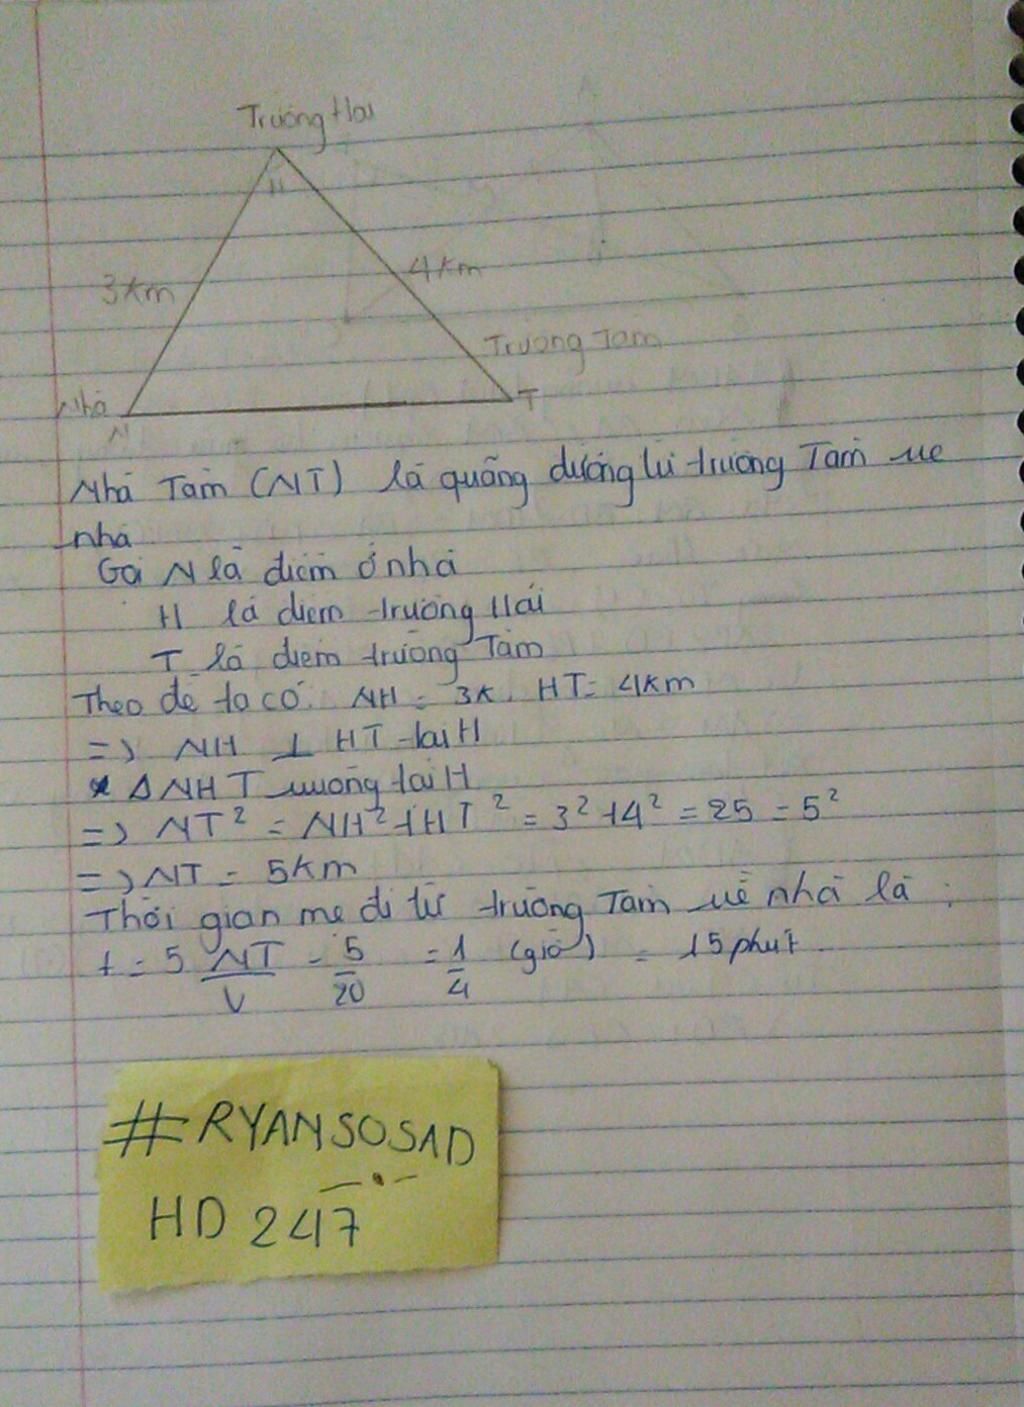 Trường Hai
H
3km
4km
Trường Tam
Nhà
T
N
Nhà Tam (NT) là quãng đường từ trường Tam về
nhà
Gọi N là điểm ở nhà
H là điểm trường Hai
T là điểm trường Tam
Theo đề ta có. NH = 3k. HT = 4km
=> NH ⊥ HT tại H
* Δ NHT vuông tại H
=> NT² = NH² + HT² = 3² + 4² = 25 = 5²
=> NT = 5km
Thời gian mẹ đi từ trường Tam về nhà là :
t = 5 NT/V = 5/20 = 1/4 (giờ) = 15 phút
#RYANSOSAD
HD 247